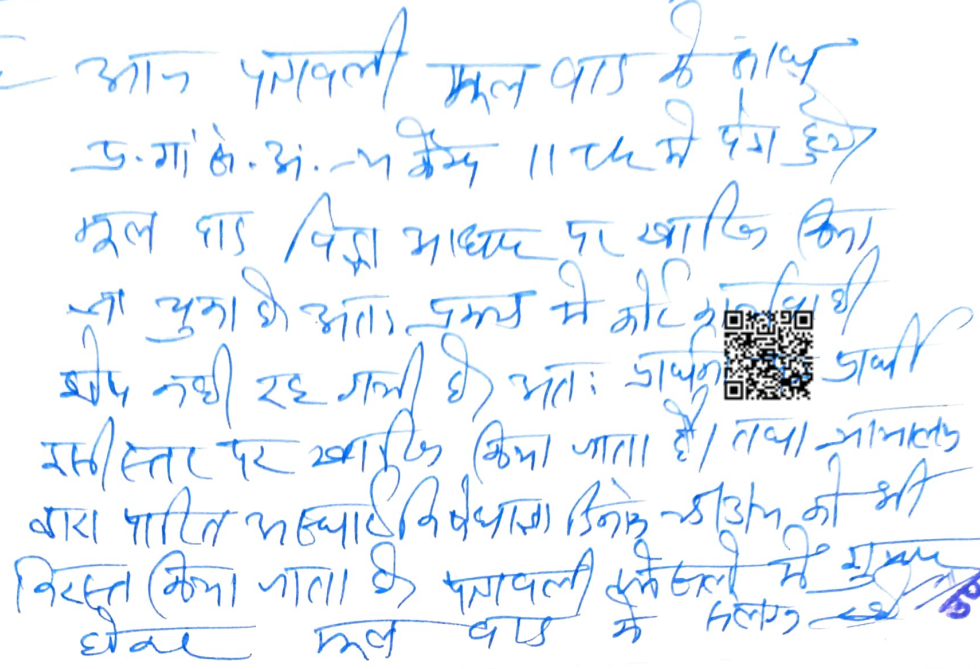 आज पत्रावली मूल वाद के साथ
प्र.गां.के.अं. कैम्प 11 में पेश हुयी
मूल वाद विड्रा आधार पर खारिज किया
जा चुका है अतः प्रकरण में कोई कार्यवाही
शेष नही रह गयी है अतः प्रार्थना प्रार्थी
इसी स्तर पर खारिज किया जाता है। तथा न्यायालय
द्वारा पारित अस्थाई निषेधाज्ञा दिनांक को भी
निरस्त किया जाता है पत्रावली फैसली में शुमार
होकर मूल वाद के संलग्न रहे